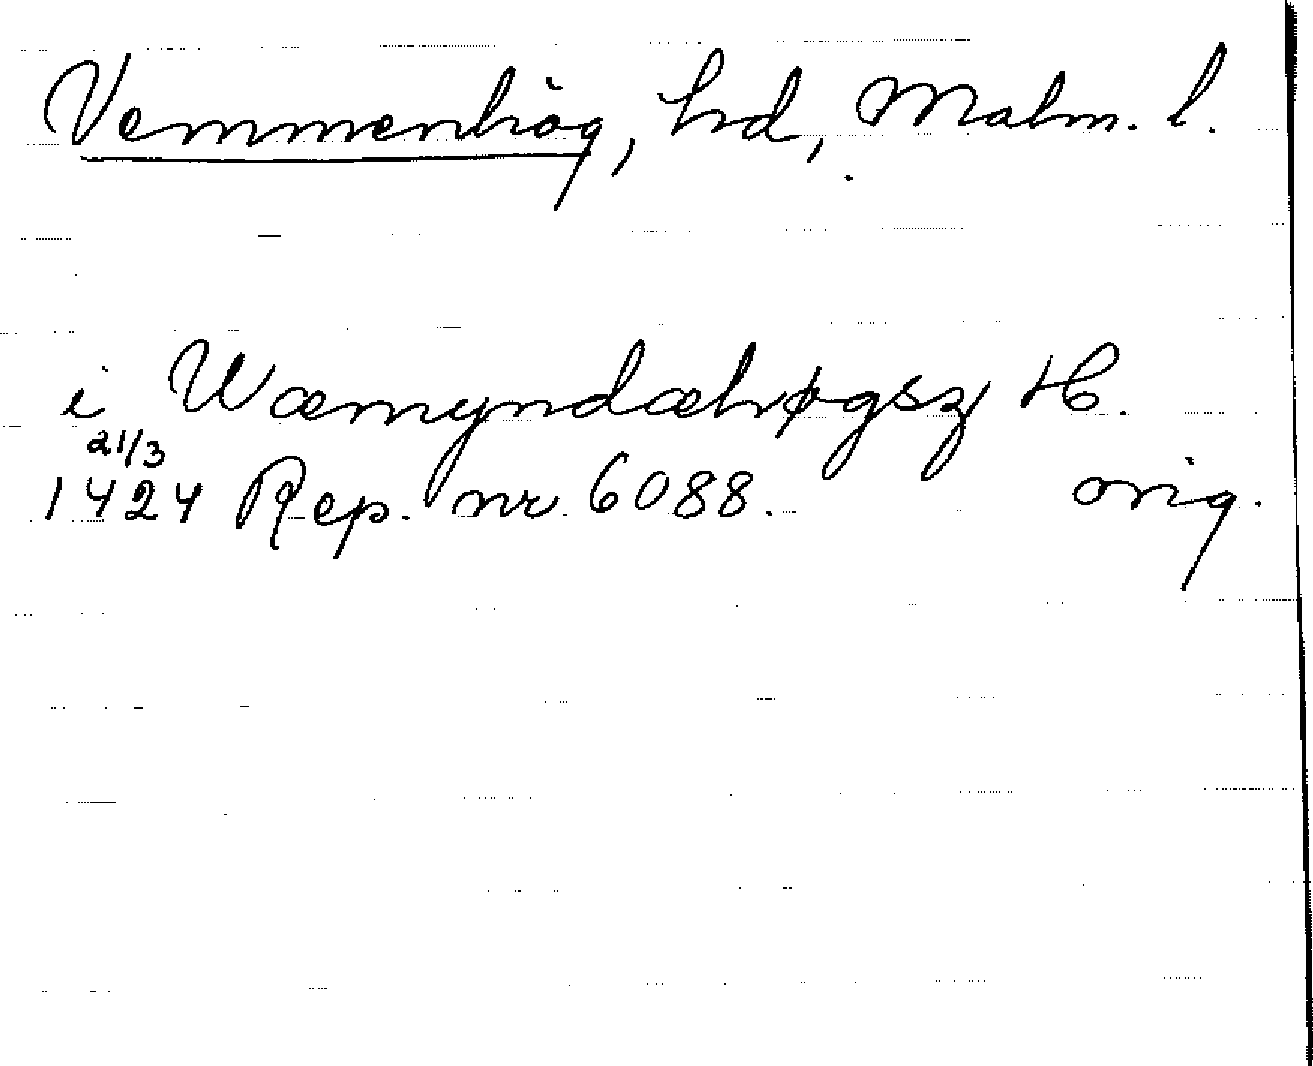 Vemmenhög, hrd, Malm. l.
i Wæmyndæhøgsz H.
21/3
1424 Rep. nr. 6088. orig.